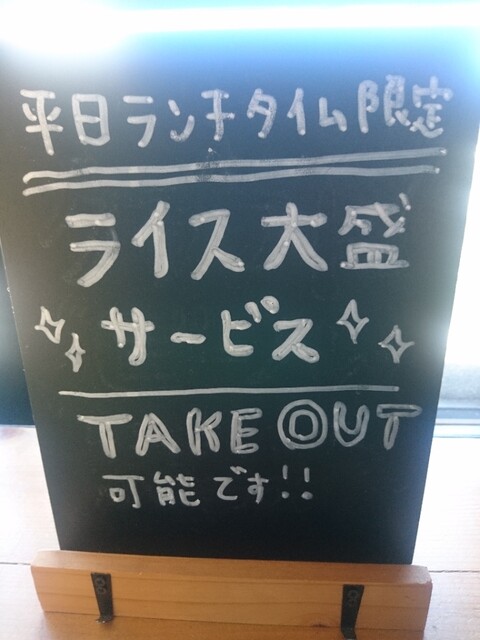 平日ランチタイム限定
ライス大盛
サービス
TAKE OUT
可能です!!